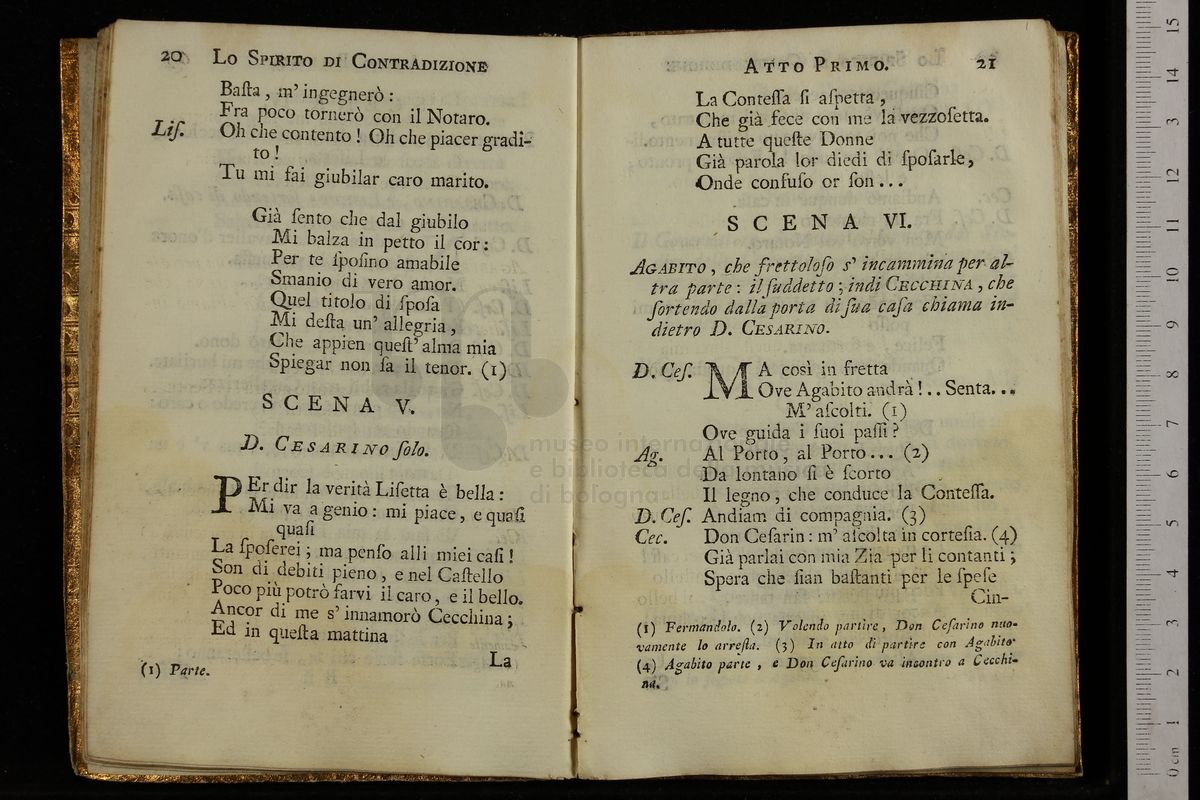 20 Lo Spirito di Contradizione
Baſta, m' ingegnerò:
Fra poco tornerò con il Notaro.
Liſ. Oh che contento! Oh che piacer gradi-
to!
Tu mi fai giubilar caro marito.
Già ſento che dal giubilo
Mi balza in petto il cor:
Per te ſpoſino amabile
Smanio di vero amor.
Quel titolo di ſpoſa
Mi deſta un' allegria,
Che appien queſt' alma mia
Spiegar non ſa il tenor. (1)
SCENA V.
D. Cesarino ſolo.
PEr dir la verità Liſetta è bella:
Mi va a genio: mi piace, e quaſi
quaſi
La ſpoſerei; ma penſo alli miei caſi!
Son di debiti pieno, e nel Caſtello
Poco più potrò farvi il caro, e il bello.
Ancor di me s' innamorò Cecchina;
Ed in queſta mattina
La
(1) Parte.
Atto Primo. 21
La Conteſſa ſi aſpetta,
Che già fece con me la vezzoſetta.
A tutte queſte Donne
Già parola lor diedi di ſpoſarle,
Onde confuſo or ſon...
SCENA VI.
Agabito, che frettoloſo s' incammina per al-
tra parte: il ſuddetto; indi Cecchina, che
ſortendo dalla porta di ſua caſa chiama in-
dietro D. Cesarino.
D. Ceſ. MA così in fretta
Ove Agabito andrà!.. Senta...
M' aſcolti. (1)
Ove guida i ſuoi paſſi?
Ag. Al Porto, al Porto... (2)
Da lontano ſi è ſcorto
Il legno, che conduce la Conteſſa.
D. Ceſ. Andiam di compagnia. (3)
Cec. Don Ceſarin: m' aſcolta in corteſia. (4)
Già parlai con mia Zia per li contanti;
Spera che ſian baſtanti per le ſpeſe
Cin-
(1) Fermandolo. (2) Volendo partire, Don Ceſarino nuo-
vamente lo arreſta. (3) In atto di partire con Agabito
(4) Agabito parte, e Don Ceſarino va incontro a Cecchi-
na.
museo internazionale
e biblioteca della musica
di bologna
0 cm 1 2 3 4 5 6 7 8 9 10 11 12 13 14 15